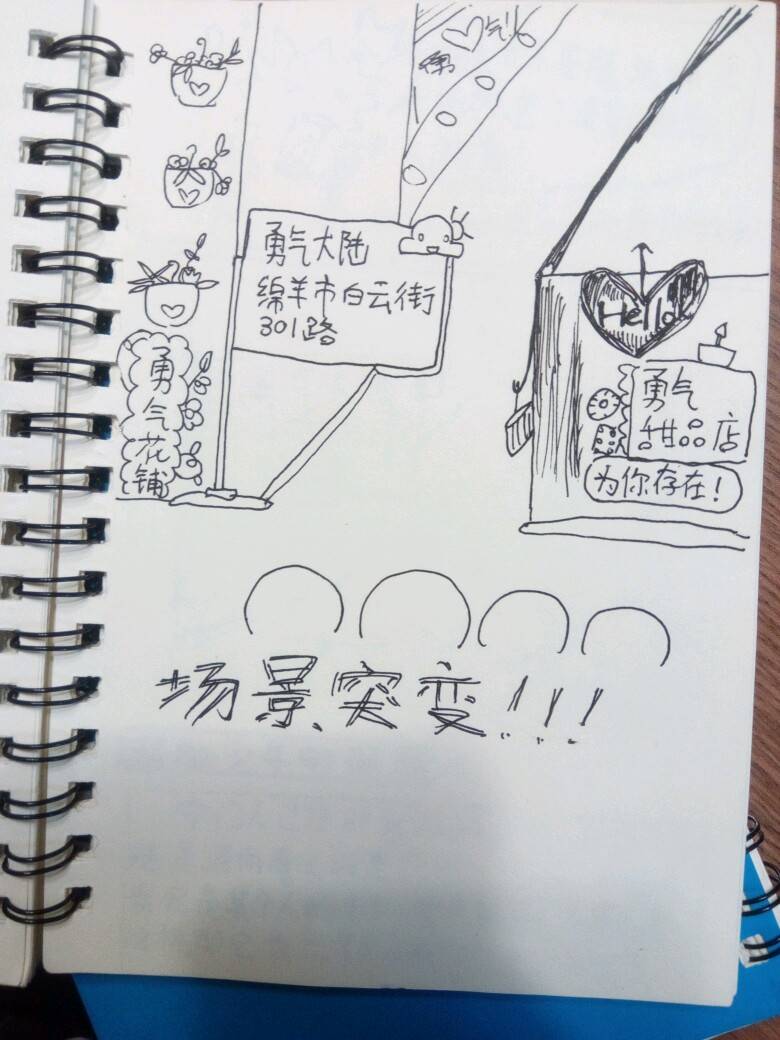 气!
勇气大陆
绵羊市白云街
301路
勇气花铺
Hello
勇气
甜品店
为你存在!
场景突变!!!